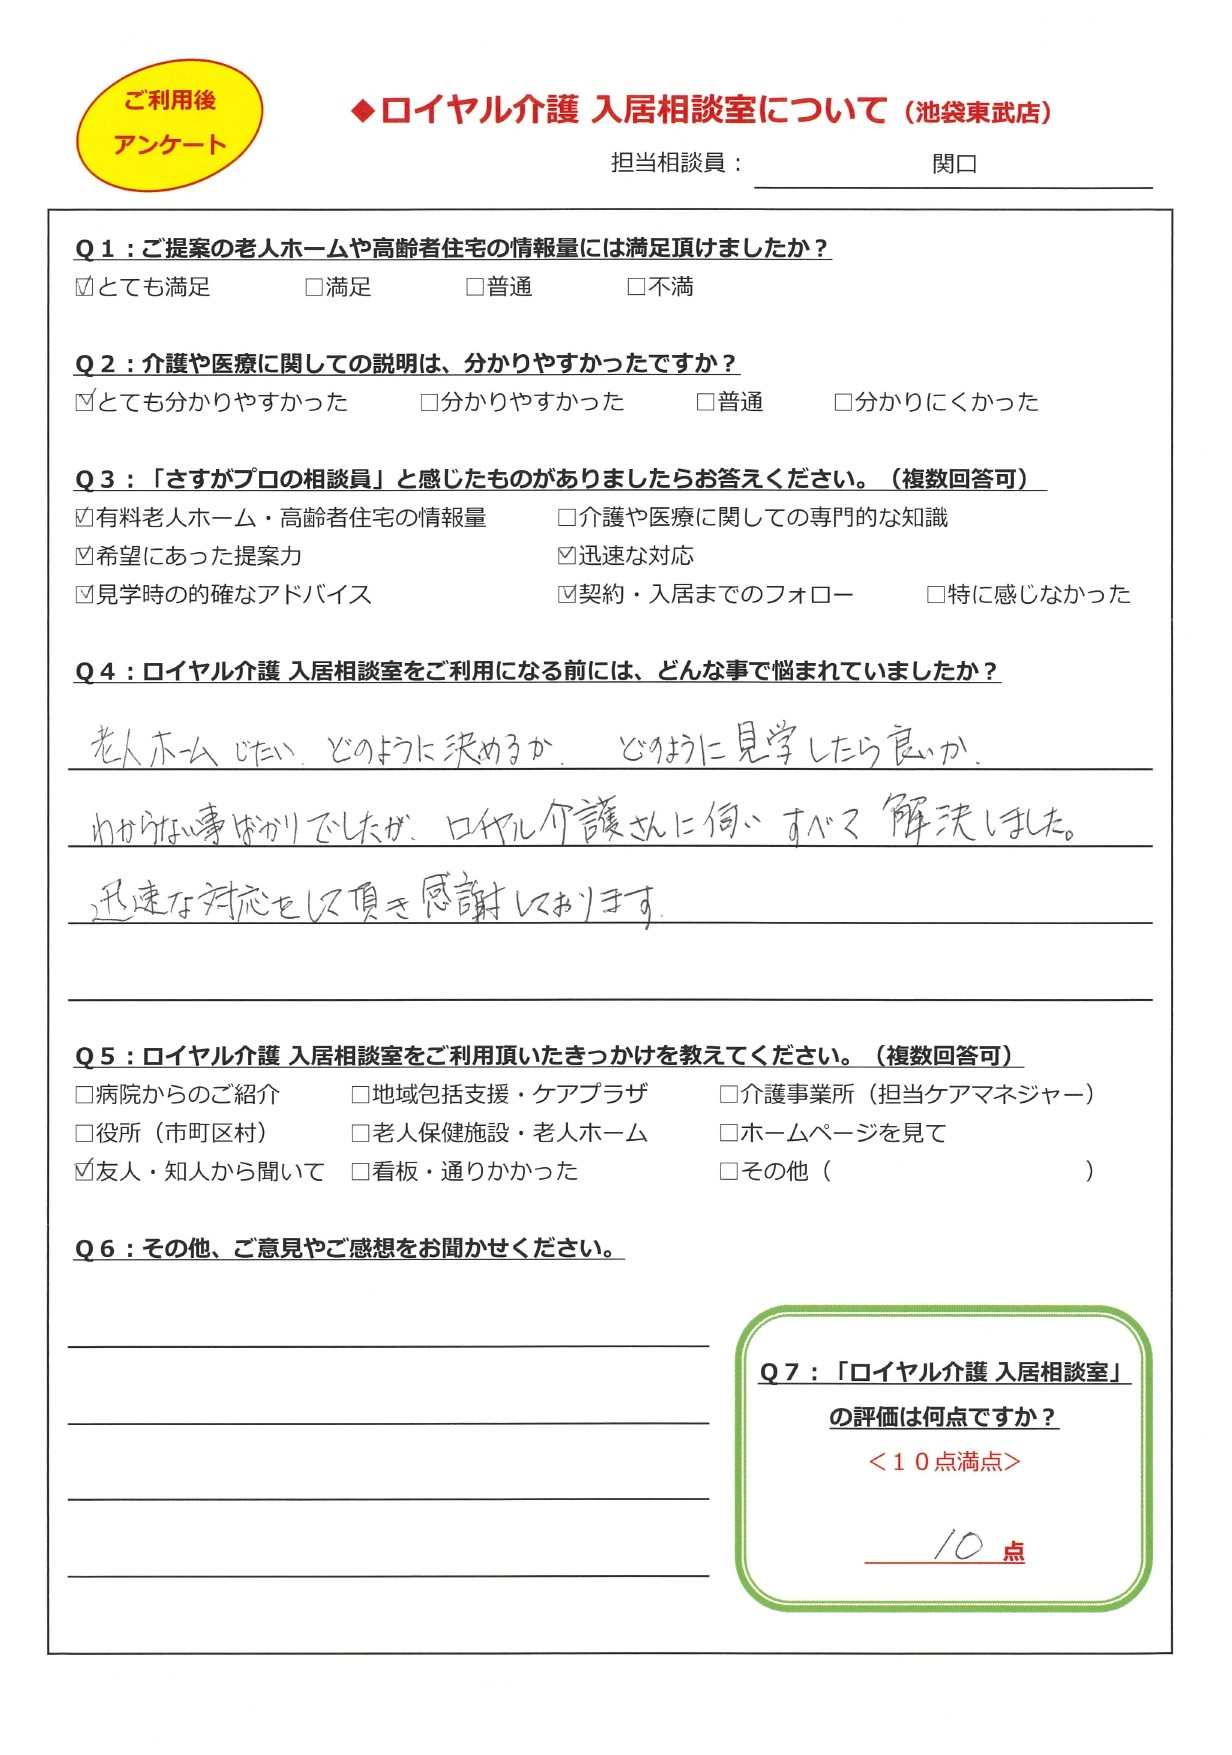 ご利用後
アンケート
◆ロイヤル介護 入居相談室について（池袋東武店）
担当相談員： 関口
Ｑ１：ご提案の老人ホームや高齢者住宅の情報量には満足頂けましたか？
☑とても満足 □満足 □普通 □不満
Ｑ２：介護や医療に関しての説明は、分かりやすかったですか？
☑とても分かりやすかった □分かりやすかった □普通 □分かりにくかった
Ｑ３：「さすがプロの相談員」と感じたものがありましたらお答えください。（複数回答可）
☑有料老人ホーム・高齢者住宅の情報量 □介護や医療に関しての専門的な知識
☑希望にあった提案力 ☑迅速な対応
☑見学時の的確なアドバイス ☑契約・入居までのフォロー □特に感じなかった
Ｑ４：ロイヤル介護 入居相談室をご利用になる前には、どんな事で悩まれていましたか？
老人ホームじたい、どのように決めるか、どのように見学したら良いか、
わからない事ばかりでしたが、ロイヤル介護さんに伺いすべて解決しました。
迅速な対応をして頂き感謝しております。
Ｑ５：ロイヤル介護 入居相談室をご利用頂いたきっかけを教えてください。（複数回答可）
□病院からのご紹介 □地域包括支援・ケアプラザ □介護事業所（担当ケアマネジャー）
□役所（市町区村） □老人保健施設・老人ホーム □ホームページを見て
☑友人・知人から聞いて □看板・通りかかった □その他（ ）
Ｑ６：その他、ご意見やご感想をお聞かせください。
Ｑ７：「ロイヤル介護 入居相談室」
の評価は何点ですか？
＜１０点満点＞
10 点